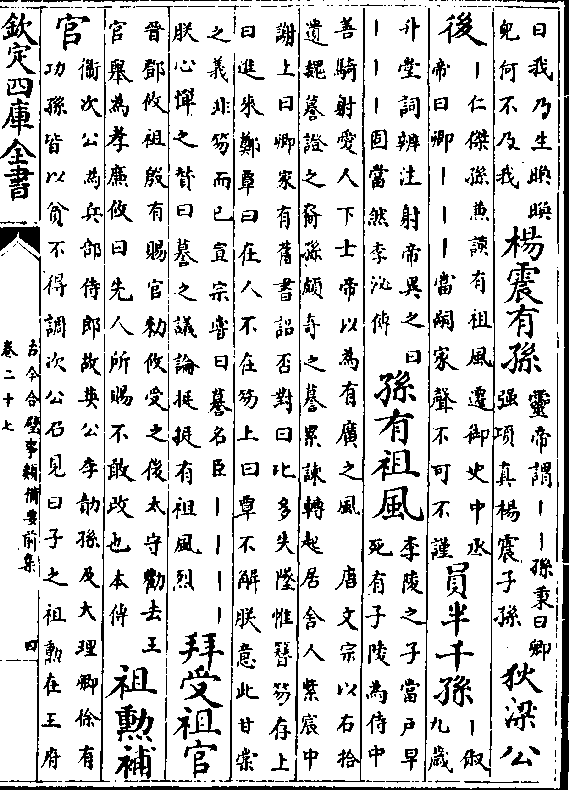 曰我乃生㬇㬇
兒何不及我
楊震有孫
靈帝謂丨丨孫秉曰卿
强項真楊震子孫
狄梁公
後
丨仁傑孫兼謨有祖風遷御史中丞
帝曰卿丨丨丨當嗣家聲不可不謹
員半千孫
丨俶
九歲
升堂詞辨注射帝異之曰
丨丨丨固當然李泌傳
孫有祖風
李陵之子當户早
死有子陵為侍中
善騎射愛人下士帝以為有廣之風　唐文宗以右拾
遺魏謩證之裔孫頗奇之謩累諫轉起居舍人紫宸中
謝上曰卿家有舊書詔否對曰比多失墜惟簪笏存上
曰進來鄭覃曰在人不在笏上曰覃不解朕意此甘棠
之義非笏而已宣宗嘗曰謩名臣丨丨丨丨
朕心憚之贊曰謩之議論挺挺有祖風烈
拜受祖官
晉鄧攸祖殷有賜官勅攸受之後太守勸去王
官舉為孝廉攸曰先人所賜不敢改也本傳
祖勲補
官
衞次公為兵部侍郎故英公李勣孫及大理卿徐有
功孫皆以貧不得調次公召見曰子之祖勲在王府
欽定四庫全書
古今合璧事類備要前集
卷二十七
四